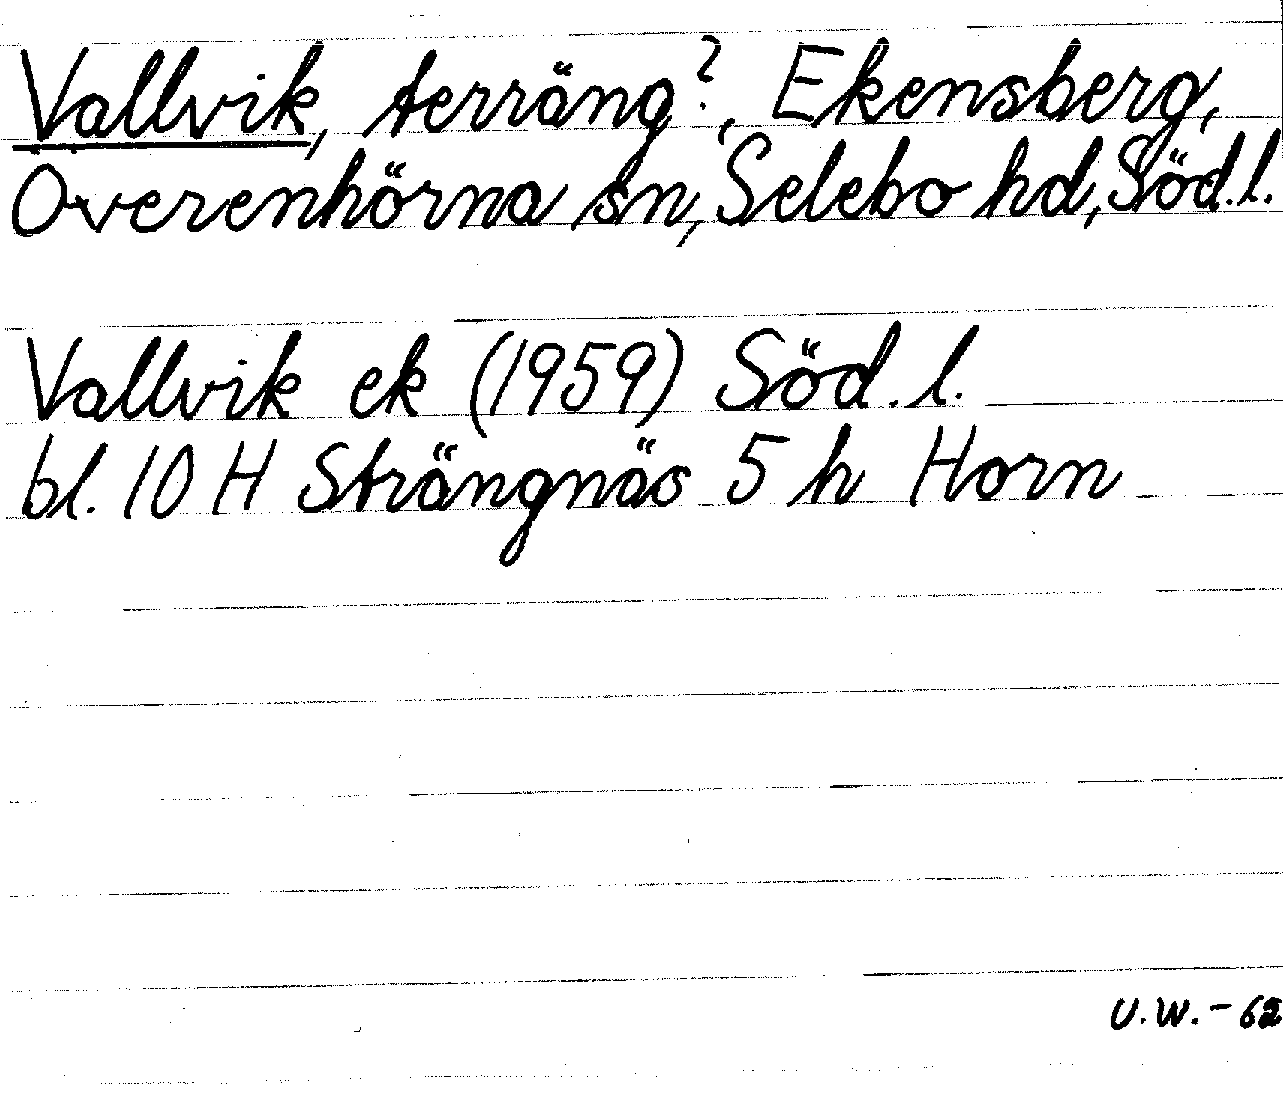 Vallvik, terräng?, Ekensberg,
Överenhörna sn, Selebo hd, Söd.l.
Vallvik ek (1959) Söd.l.
bl. 10 H Strängnäs 5 h Horn
U.W.-62